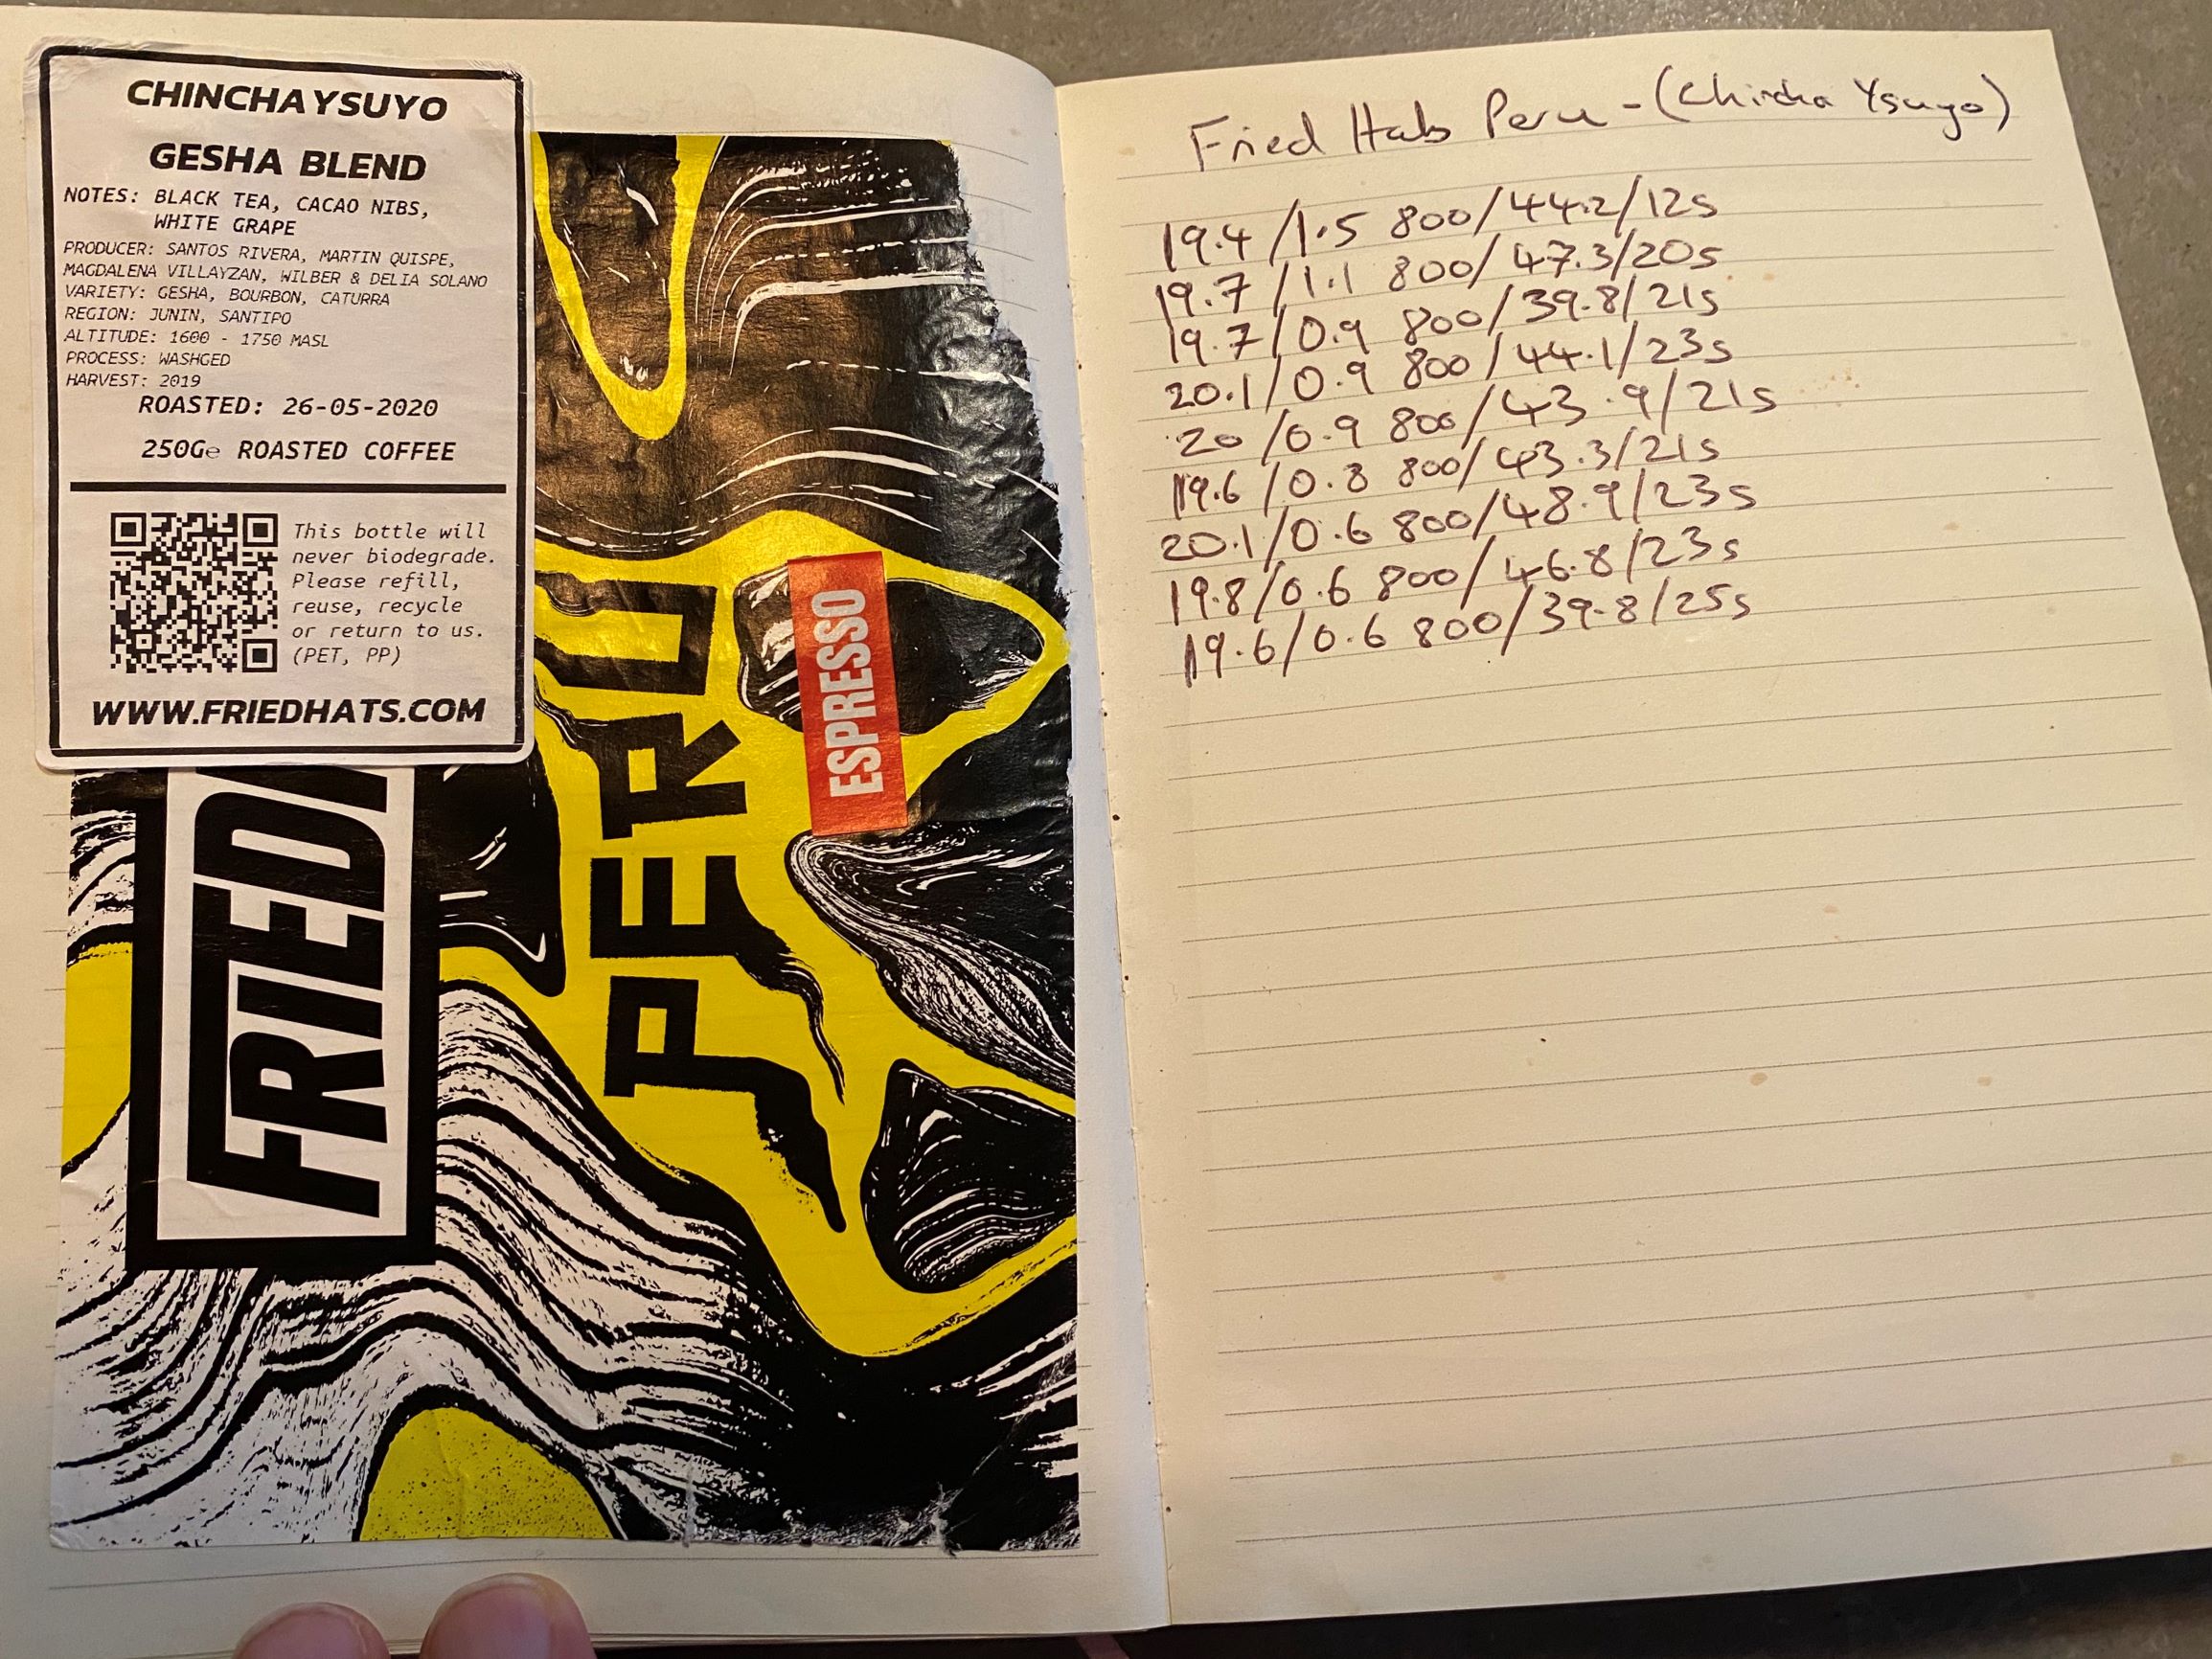 CHINCHAYSUYO
GESHA BLEND
NOTES: BLACK TEA, CACAO NIBS,
WHITE GRAPE
PRODUCER: SANTOS RIVERA, MARTIN QUISPE,
MAGDALENA VILLAYZAN, WILBER & DELIA SOLANO
VARIETY: GESHA, BOURBON, CATURRA
REGION: JUNIN, SANTIPO
ALTITUDE: 1600 - 1750 MASL
PROCESS: WASHGED
HARVEST: 2019
ROASTED: 26-05-2020
250G℮ ROASTED COFFEE
This bottle will
never biodegrade.
Please refill,
reuse, recycle
or return to us.
(PET, PP)
WWW.FRIEDHATS.COM
FRIED
PERU
ESPRESSO
Fried Hats Peru - (Chincha Ysuyo)
19.4/1.5 800/44.2/12s
19.7/1.1 800/47.3/20s
19.7/0.9 800/39.8/21s
20.1/0.9 800/44.1/23s
20/0.9 800/43.9/21s
19.6/0.8 800/43.3/21s
20.1/0.6 800/48.9/23s
19.8/0.6 800/46.8/23s
19.6/0.6 800/39.8/25s